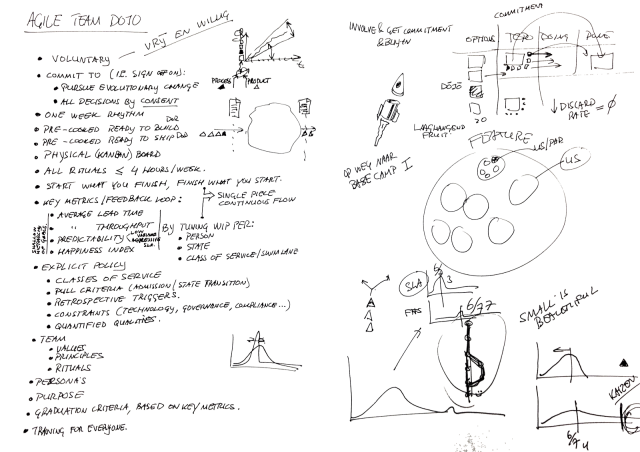 AGILE TEAM DOJO
VRIJ EN WILLIG
• VOLUNTARY
• COMMIT TO (I.E. SIGN OFF ON):
• PURSUE EVOLUTIONARY CHANGE
• ALL DECISIONS BY CONSENT
PROCESS PRODUCT
• ONE WEEK RHYTHM
• PRE-COOKED READY TO BUILD DOR
• PRE-COOKED READY TO SHIP DOD
• PHYSICAL (KANBAN) BOARD
• ALL RITUALS ≤ 4 HOURS/WEEK.
• START WHAT YOU FINISH, FINISH WHAT YOU START.
• KEY METRICS/FEEDBACK LOOP:
SINGLE PIECE
CONTINUOUS FLOW
• AVERAGE LEAD TIME
• " THROUGHPUT
• PREDICTABILITY
• HAPPINESS INDEX
BY TUNING WIP PER:
• PERSON
• STATE
• CLASS OF SERVICE/SWIMLANE
• EXPLICIT POLICY
• CLASSES OF SERVICE
• PULL CRITERIA (ADMISSION/STATE TRANSITION)
• RETROSPECTIVE TRIGGERS.
• CONSTRAINTS (TECHNOLOGY, GOVERNANCE, COMPLIANCE...)
• QUANTIFIED QUALITIES.
• TEAM
• VALUES
• PRINCIPLES
• RITUALS
• PERSONA'S
• PURPOSE
• GRADUATION CRITERIA, BASED ON KEY METRICS.
• TRAINING FOR EVERYONE.
COMMITMENT
INVOLVE & GET COMMITMENT
& BUY IN
OPTIONS TODO DOING DONE
DOJO
20
↓ DISCARD
RATE = ∅
LAAGHANGEND
FRUIT
OP WEG NAAR
BASE CAMP I
FEATURE
US/PAR
US
SLA
6/7 3
6/77
SMALL IS
BEAUTIFUL
KAIZEN
6/7 4